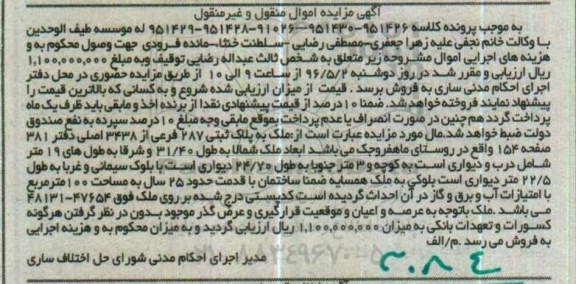 آگهی مزایده اموال منقول و غیرمنقول
به موجب پرونده کلاسه ۹۵۱۴۲۶-۹۵۱۴۳۰-۹۱۰۲۶-۹۵۱۴۲۸-۹۵۱۴۲۹ له موسسه طیف الوحدین
با وکالت خانم نجفی علیه زهرا جعفری-مصطفی رضایی-سلطنت خنثا-مانده فرودی جهت وصول محکوم به و
هزینه های اجرایی اموال مشروحه زیر متعلق به شخص ثالث عبداله رضایی توقیف وبه مبلغ ۱,۱۰۰,۰۰۰,۰۰۰
ریال ارزیابی و مقرر شد در روز دوشنبه ۹۶/۵/۲ از ساعت ۹ الی ۱۰ از طریق مزایده حضوری در محل دفتر
اجرای احکام مدنی ساری به فروش برسد. قیمت از میزان ارزیابی شده شروع و به کسانی که بالاترین قیمت را
پیشنهاد نمایند فروخته خواهد شد. ضمنا ۱۰درصد از قیمت پیشنهادی نقدا از برنده اخذ و مابقی باید ظرف یک ماه
پرداخت گردد هم چنین در صورت انصراف یا عدم پرداخت بموقع مابقی وجه مبلغ ۱۰درصد سپرده به نفع صندوق
دولت ضبط خواهد شد.مال مورد مزایده عبارت است از:ملک به پلاک ثبتی ۲۸۷ فرعی از ۳۴۳۸ اصلی دفتر ۳۸۱
صفحه ۱۵۴ واقع در روستای ماهفروجک می باشد ابعاد ملک شمالا به طول ۳۱/۴۰ و شرقا به طول های ۱۹ متر
شامل درب و دیواری است به کوچه و ۳ متر جنوبا به طول ۲۴/۷۰ دیواری است با بلوک سیمانی و غربا به طول
۲۲/۵ متر دیواری است بلوکی به ملک همسایه ضمنا ساختمان با قدمت حدود ۲۵ سال به مساحت ۱۰۰مترمربع
با امتیازات آب و برق و گاز در آن احداث گردیده است کدپستی درج شده بر روی ملک فوق ۴۷۶۵۴-۴۸۱۳۱
می باشد. ملک باتوجه به عرصه و اعیان و موقعیت قرارگیری و عرض گذر موجود بدون در نظر گرفتن هرگونه
کسورات و تعهدات بانکی به میزان ۱,۱۰۰,۰۰۰,۰۰۰ ریال ارزیابی گردید و به میزان محکوم به و هزینه اجرایی
به فروش می رسد .م/الف
مدیر اجرای احکام مدنی شورای حل اختلاف ساری